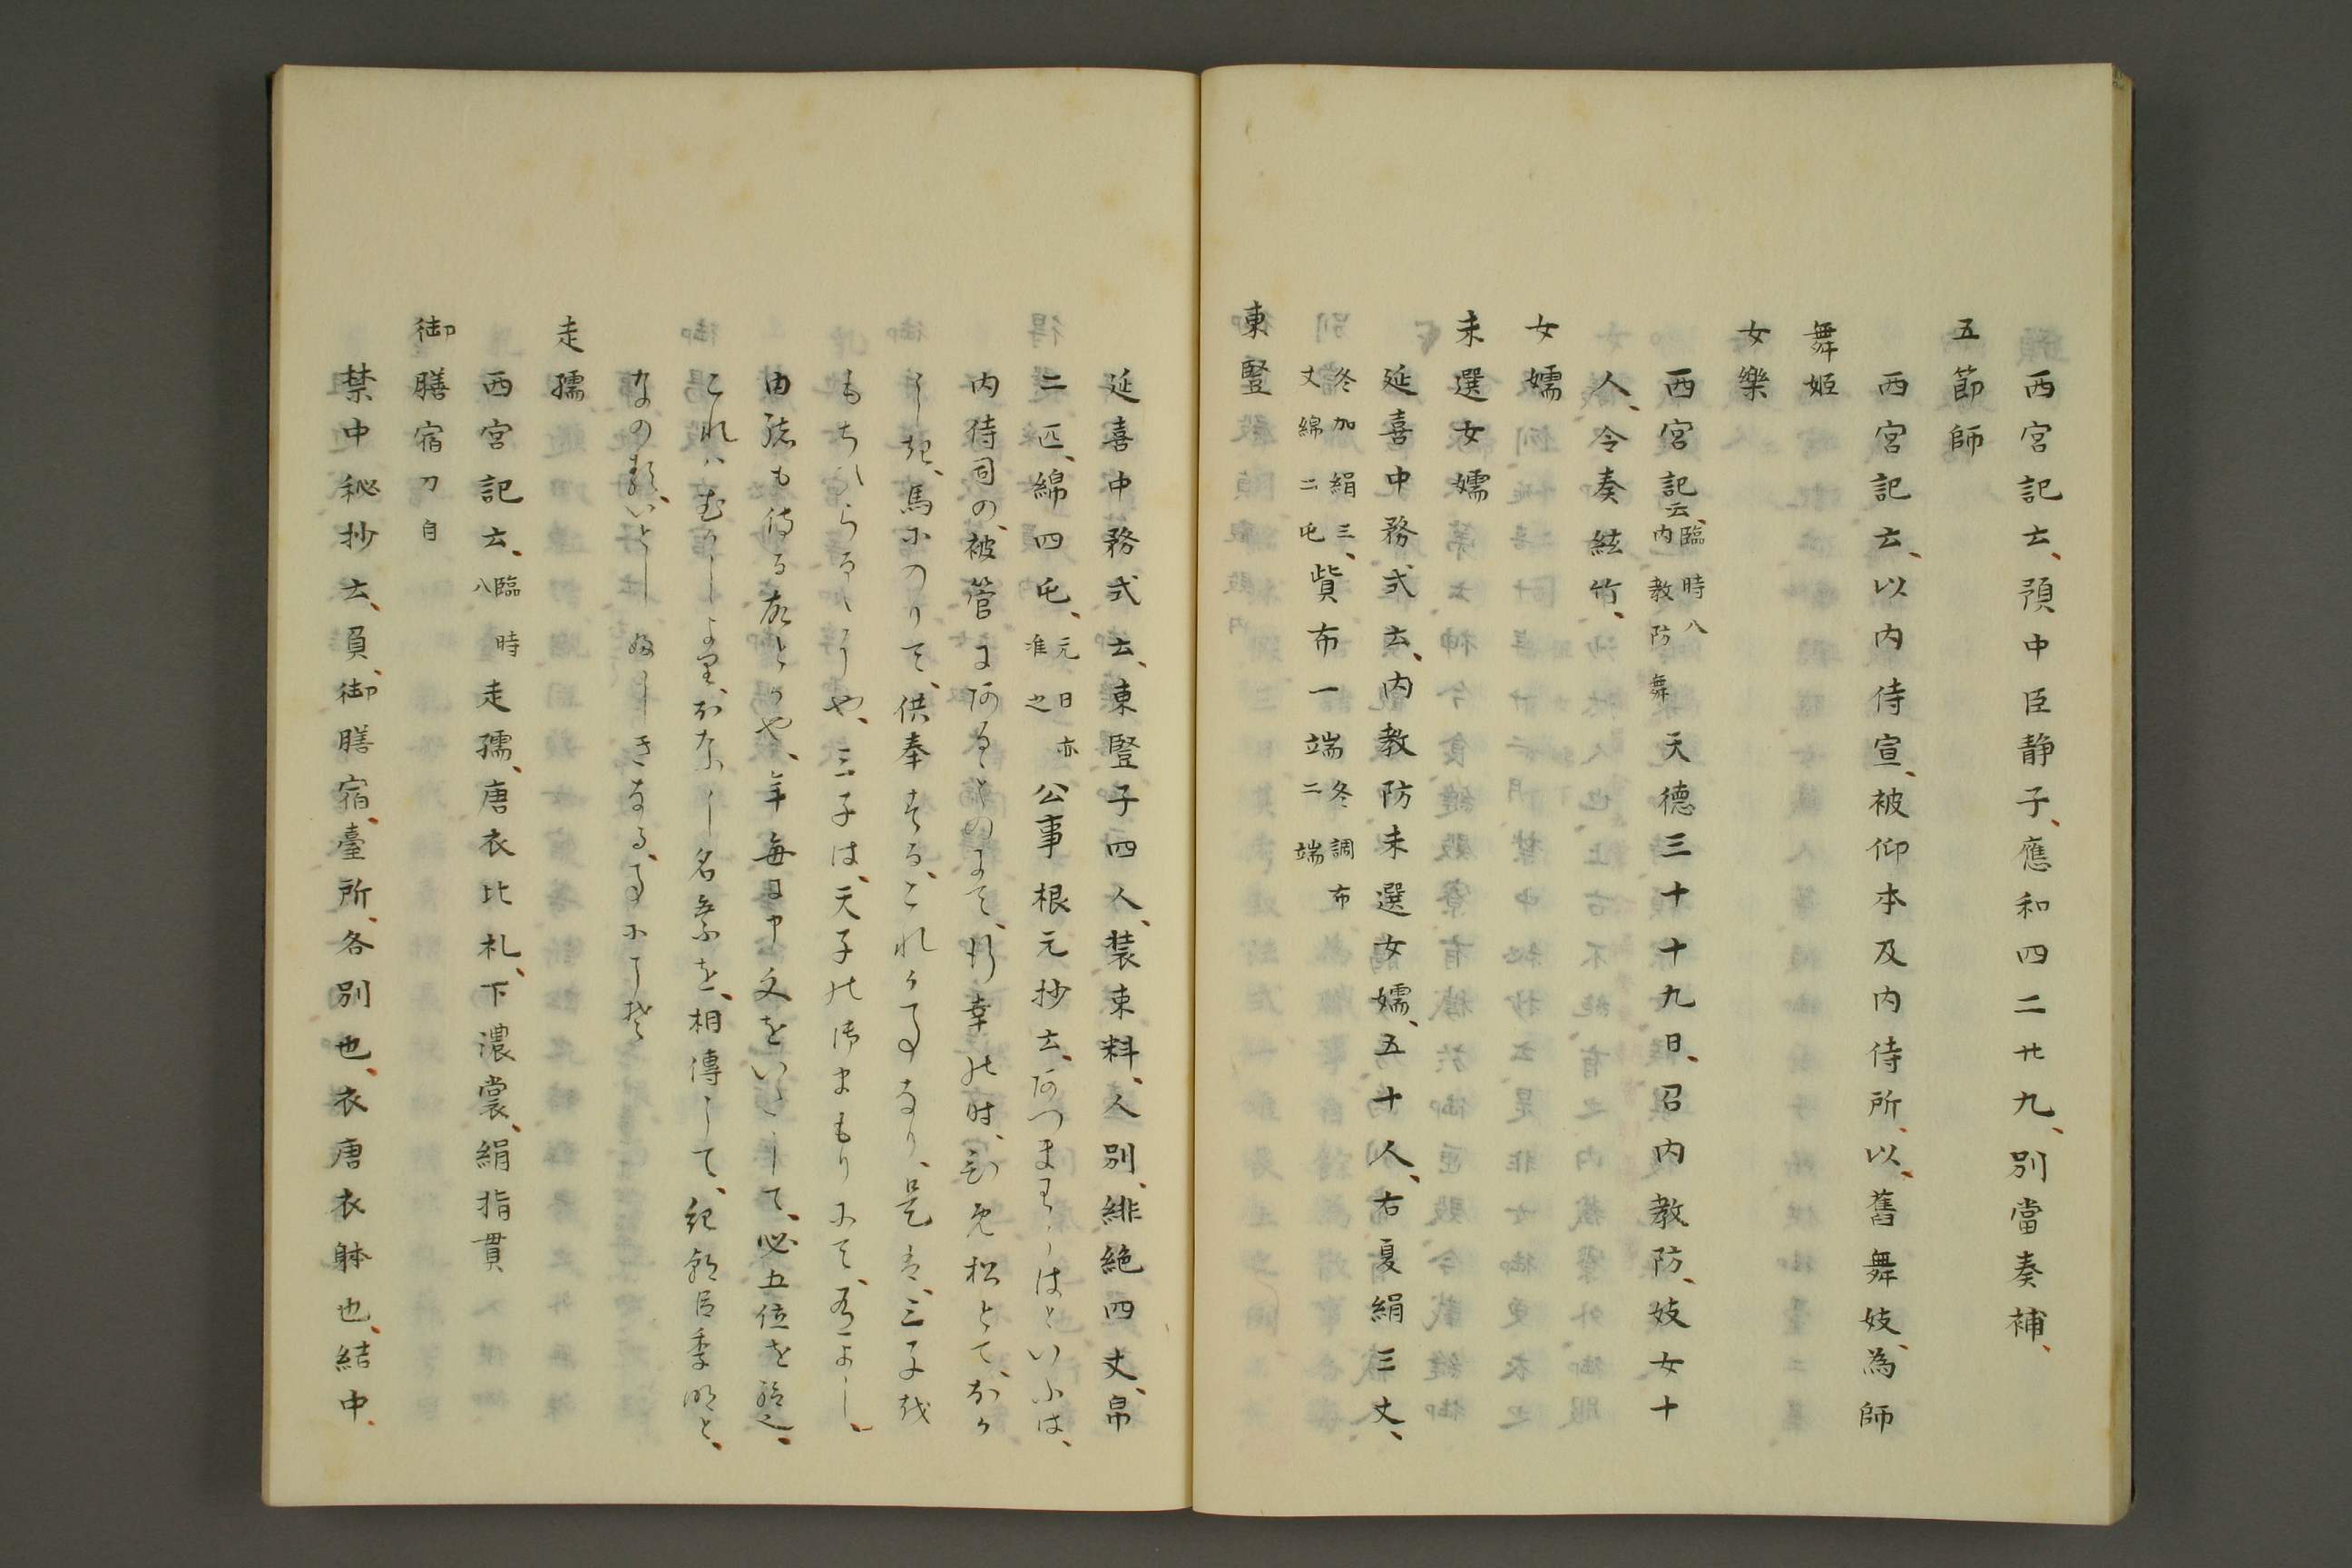 西宮記云、預中臣静子、應和四二廿九、別當奏補、
五節師
西宮記云、以内侍宣、被仰本及内侍所、以、舊舞妓、為師
舞姫
女樂
西宮記云、臨時八内教防舞天德三十十九日、召内教防、妓女十
人、令奏絃竹、
女嬬
未選女嬬
延喜中務式云、内教防未選女嬬、五十人、右夏絹三丈、
冬加絹三丈綿二屯、貲布一端冬調布二端
東豎
延喜中務式云、東豎子四人、装束料、人別、緋絁四丈、帛
二匹、綿四屯、元日亦准之公事根元抄云、あつまわらはといふは、
内侍司の、被管にあるものにて、行幸の時、
馬にのりて、供奉する、これか事なり、是を、三子或
もちひらるヽにや、三子は、天子の御まもりにて、
由緒も侍る故とかや、年毎に申文をいたして、必五位を給也、
これはむかしより、おなし名字を、相傳して、紀朝臣季明と、
なのる
走孺
西宮記云、臨時八走孺、唐衣比礼、下濃裳、絹指貫
御膳宿刀自
禁中秘抄云、負、御膳宿、臺所、各別也、衣唐衣躰也、結中、